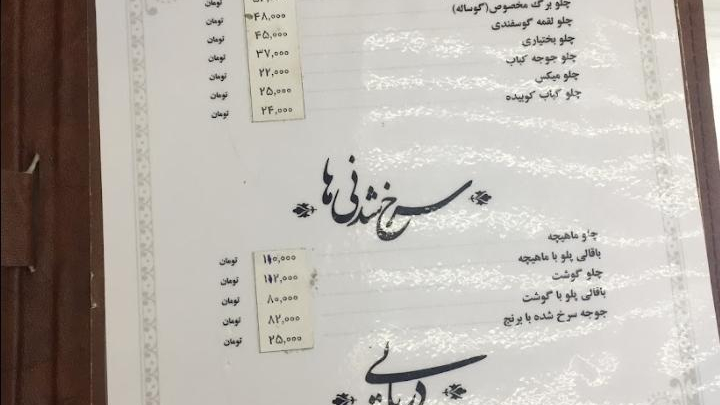 تومان
چلو برگ مخصوص(گوساله) ۴۸,۰۰۰ تومان
چلو لقمه گوسفندی ۴۵,۰۰۰ تومان
چلو بختیاری ۳۷,۰۰۰ تومان
چلو جوجه کباب ۲۲,۰۰۰ تومان
چلو میکس ۲۵,۰۰۰ تومان
چلو کباب کوبیده ۲۴,۰۰۰ تومان
سرخ شدنی ها
چلو ماهیچه ۱۱۰,۰۰۰ تومان
باقالی پلو با ماهیچه ۱۱۲,۰۰۰ تومان
چلو گوشت ۸۰,۰۰۰ تومان
باقالی پلو با گوشت ۸۲,۰۰۰ تومان
جوجه سرخ شده با برنج ۲۵,۰۰۰ تومان
دریایی